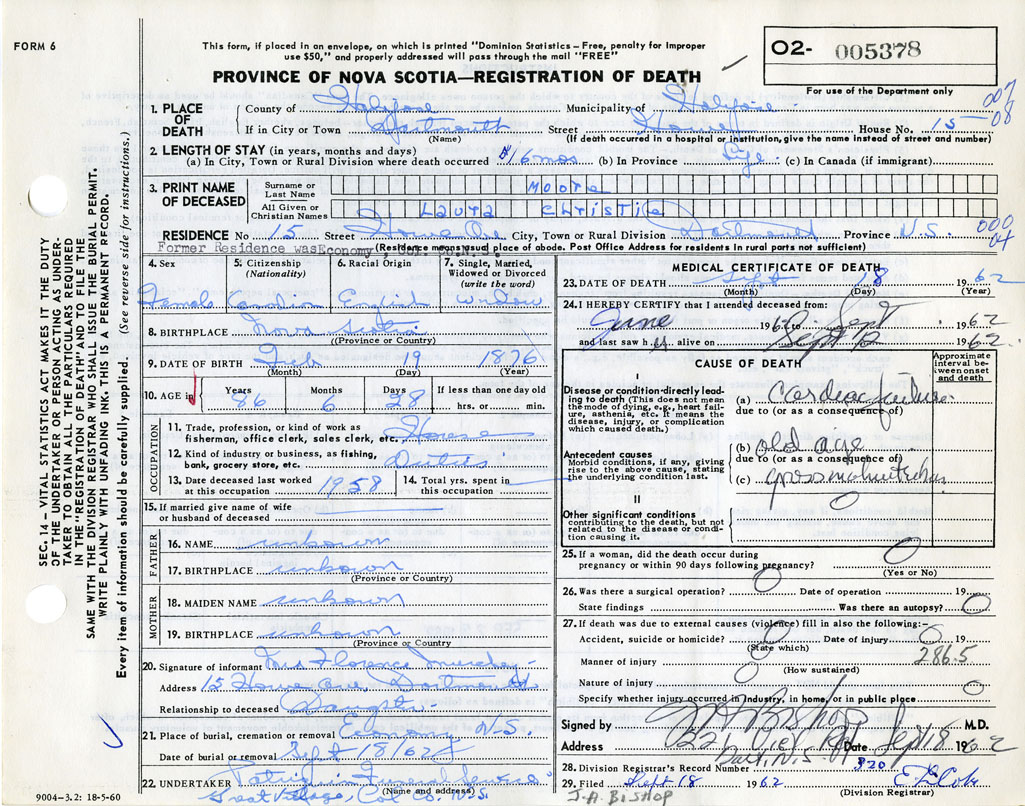 FORM 6
This form, if placed in an envelope, on which is printed "Dominion Statistics – Free, penalty for improper
use $50," and properly addressed will pass through the mail "FREE"
O2- 005378
PROVINCE OF NOVA SCOTIA—REGISTRATION OF DEATH
For use of the Department only
007
08
1. PLACE OF DEATH
County of Halifax Municipality of Halifax
If in City or Town Dartmouth Street Howe House No. 15
(Name) (If death occurred in a hospital or institution, give the name instead of street and number)
2. LENGTH OF STAY (in years, months and days)
(a) In City, Town or Rural Division where death occurred 16 mos (b) In Province Life (c) In Canada (if immigrant)
3. PRINT NAME OF DECEASED
Surname or Last Name Moore
All Given or Christian Names Laura Christie
RESIDENCE No 15 Street Howe Ave City, Town or Rural Division Dartmouth Province N.S. 000
04
Former Residence was Economy, Col. Co. N.S.
(Residence means usual place of abode. Post Office Address for residents in rural parts not sufficient)
4. Sex
Female
5. Citizenship
(Nationality)
Canadian
6. Racial Origin
English
7. Single, Married, Widowed or Divorced
(write the word)
Widow
8. BIRTHPLACE Nova Scotia
(Province or Country)
9. DATE OF BIRTH Feb 19 1876
(Month) (Day) (Year)
10. AGE in
Years 86
Months 6
Days 28
If less than one day old
hrs. or min.
OCCUPATION
11. Trade, profession, or kind of work as
fisherman, office clerk, sales clerk, etc. House
12. Kind of industry or business, as fishing,
bank, grocery store, etc. Duties
13. Date deceased last worked
at this occupation 1958
14. Total yrs. spent in
this occupation
15. If married give name of wife
or husband of deceased
FATHER
16. NAME unknown
17. BIRTHPLACE unknown
(Province or Country)
MOTHER
18. MAIDEN NAME unknown
19. BIRTHPLACE unknown
(Province or Country
20. Signature of informant Mrs Florence
Address 15 Howe Ave, Dartmouth
Relationship to deceased Daughter
21. Place of burial, cremation or removal Economy N.S.
Date of burial or removal Sept 18/62
22. UNDERTAKER Funeral Service
(Name and address)
Great Village, Col Co. N.S.
MEDICAL CERTIFICATE OF DEATH
23. DATE OF DEATH Sept 18 1962
(Month) (Day) (Year)
24. I HEREBY CERTIFY that I attended deceased from:
June 1962 to Sept 1962
and last saw her alive on Sept 12 1962
CAUSE OF DEATH
Approximate interval between onset and death
I
Disease or condition-directly leading to death (This does not mean the mode of dying, e.g., heart failure, asthenia, etc. It means the disease, injury, or complication which caused death.)
(a) Cardiac failure
due to (or as a consequence of)
Antecedent causes
Morbid conditions, if any, giving rise to the above cause, stating the underlying condition last.
(b) old age
due to (or as a consequence of)
(c) gross malnutrition
II
Other significant conditions
contributing to the death, but not related to the disease or condition causing it.
O
25. If a woman, did the death occur during
pregnancy or within 90 days following pregnancy? O
(Yes or No)
26. Was there a surgical operation? O Date of operation 19
State findings Was there an autopsy? O
27. If death was due to external causes (violence) fill in also the following:-
Accident, suicide or homicide? O Date of injury O 19
(State which)
286.5
Manner of injury O
(How sustained)
Nature of injury O
Specify whether injury occurred in industry, in home, or in public place O
Signed by Bishop M.D.
Address 221 Rd Date Sept 18 1962
Dart, N.S.
28. Division Registrar's Record Number 320
29. Filed Sept 18 1962
(Division Registrar)
J.A. BISHOP
9004-3.2: 18-5-60
SEC. 14 – VITAL STATISTICS ACT MAKES IT THE DUTY
OF THE UNDERTAKER OR PERSON ACTING AS UNDER-
TAKER TO OBTAIN ALL THE PARTICULARS REQUIRED
IN THE "REGISTRATION OF DEATH" AND TO FILE THE
SAME WITH THE DIVISION REGISTRAR WHO SHALL ISSUE THE BURIAL PERMIT.
WRITE PLAINLY WITH UNFADING INK. THIS IS A PERMANENT RECORD.
Every item of information should be carefully supplied. (See reverse side for instructions.)